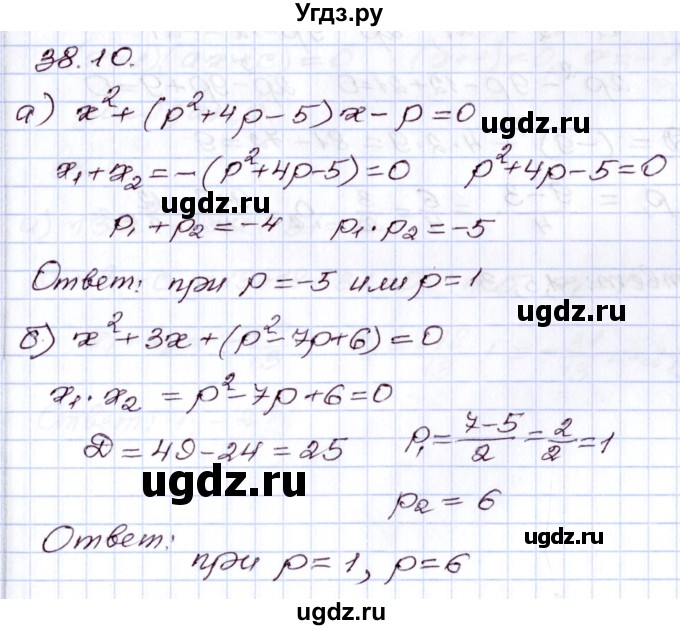 Угдз.ру
38.10.
а) x²+(p²+4p-5)x-p=0
ugdz.ru
x₁+x₂=-(p²+4p-5)=0 p²+4p-5=0
ugdz.ru
p₁+p₂=-4 p₁·p₂=-5
Ответ: при p=-5 или p=1
ugdz.ru
б) x²+3x+(p²-7p+6)=0
x₁·x₂=p²-7p+6=0
D=49-24=25 p₁=(7-5)/2=2/2=1
ugdz.ru
p₂=6
Ответ:
при p=1, p=6
ugdz.ru
ugdz.ru